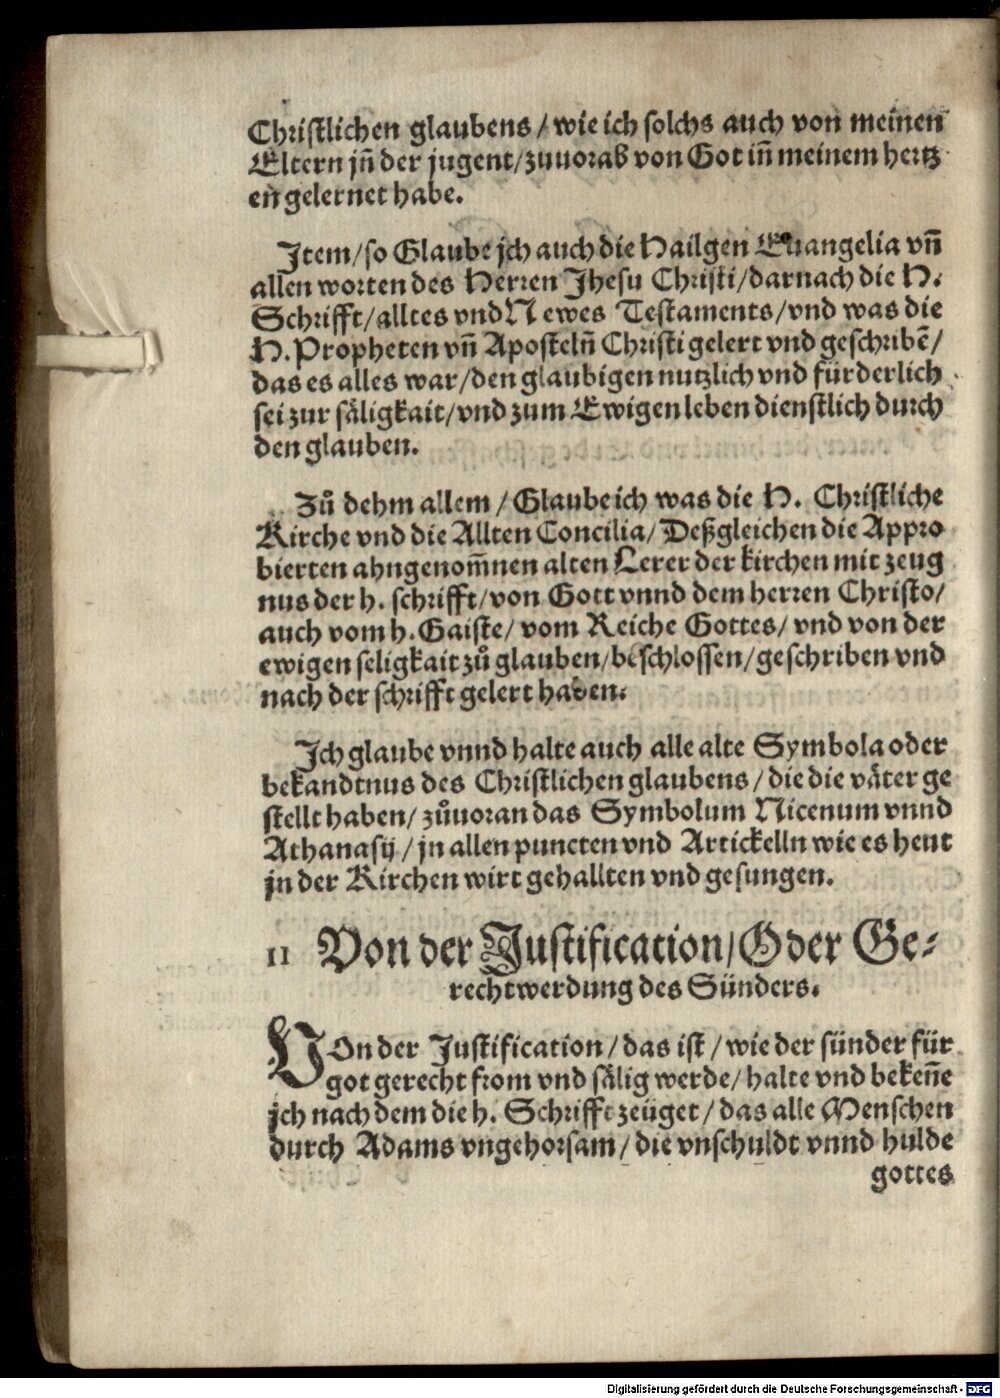 Christlichen glaubens / wie ich solchs auch von meinen
Eltern jñ der jugent / zuuorab von Got iñ meinem hertz
eñ gelernet habe.
Item / so Glaube jch auch die Hailgen Euangelia vñ
allen worten des Herren Jhesu Christi / darnach die H.
Schrifft / alltes vnd Newes Testaments / vnd was die
H. Propheten vñ Aposteln̄ Christi gelert vnd geschribē /
das es alles war / den glaubigen nutzlich vnd fürderlich
sei zur säligkait / vnd zum Ewigen leben dienstlich durch
den glauben.
Zů dehm allem / Glaube ich was die H. Christliche
Kirche vnd die Allten Concilia / Deßgleichen die Appro
bierten ahngenom̄nen alten Lerer der kirchen mit zeug
nus der h. schrifft / von Gott vnnd dem herren Christo /
auch vom h. Gaiste / vom Reiche Gottes / vnd von der
ewigen seligkait zů glauben / beschlossen / geschriben vnd
nach der schrifft gelert haben.
Ich glaube vnnd halte auch alle alte Symbola oder
bekandtnus des Christlichen glaubens / die die väter ge
stellt haben / zůuoran das Symbolum Nicenum vnnd
Athanasij / jn allen puncten vnd Artickelln wie es heut
jn der Kirchen wirt gehallten vnd gesungen.
II Von der Justification / Oder Ge-
rechtwerdung des Sünders.
VOn der Justification / das ist / wie der sünder für
got gerecht from vnd sälig werde / halte vnd bekeñe
jch nach dem die h. Schrifft zeüget / das alle Menschen
durch Adams vngehorsam / die vnschuldt vnnd hulde
gottes
Digitalisierung gefördert durch die Deutsche Forschungsgemeinschaft - DFG